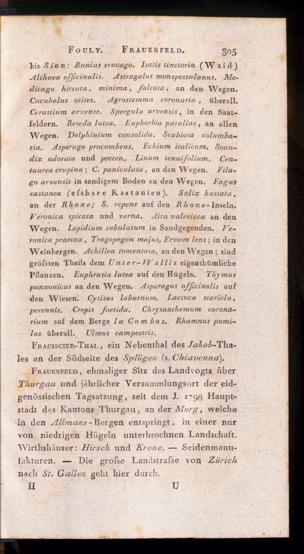 FOULY. FRAUENFELD. 305
bis Sion: Bunias erucago. Isatis tinctoria (Waid)
Althaea officinalis. Astragalus monspessulanus. Me-
dicago hirsuta, minima, falcata, an den Wegen.
Cucubalus otites. Agrostemma coronaria, überall.
Cerastium arvense. Spergula arvensis, in den Saa-
feldern. Reseda lutea. Euphorbia paralias, an allen
Wegen. Delphinium consolida. Scabiosa columba-
ria. Asperugo procumbens. Echium italicum. Scan-
dix odorata und pecten. Linum tenuifolium. Cen-
taurea crupina; C. paniculata, an den Wegen. Fila-
go arvensis in sandigem Boden an den Wegen. Fagus
castanea (essbare Kastanien). Salix hastata,
an der Rhone; S. repens auf den Rhone-Inseln.
Veronica spicata und verna. Aira valesiaca an den
Wegen. Lepidium subulatum in Sandgegenden. Ve-
ronica praecox, Tragopogon majus, Ervum lens; in den
Weinbergen. Achillea tomentosa, an den Wegen; sind
größten Theils dem Unter-Wallis eigenthümliche
Pflanzen. Euphrasia lutea auf den Hügeln. Thymus
pannonicus an den Wegen. Asparagus officinalis auf
den Wiesen. Cytisus laburnum. Lactuca scariola,
perennis. Crepis foetida. Chrysanthemum corona-
rium auf dem Berge la Combaz. Rhamnus pumi-
lus überall. Ulmus campestris.
FRACISCIER-THAL, ein Nebenthal des Jakob-Tha-
les an der Südseite des Splügen (s. Chiavenna).
FRAUENFELD, ehmaliger Sitz des Landvogts über
Thurgau und jährlicher Versammlungsort der eid-
genössischen Tagsatzung, seit dem J. 1798 Haupt-
stadt des Kantons Thurgau, an der Murg, welche
in den Allmans-Bergen entspringt, in einer nur
von niedrigen Hügeln unterbrochnen Landschaft.
Wirthshäuser: Hirsch und Krone. — Seidenmanu-
fakturen. — Die große Landstraße von Zürich
nach St. Gallen geht hier durch.
II U